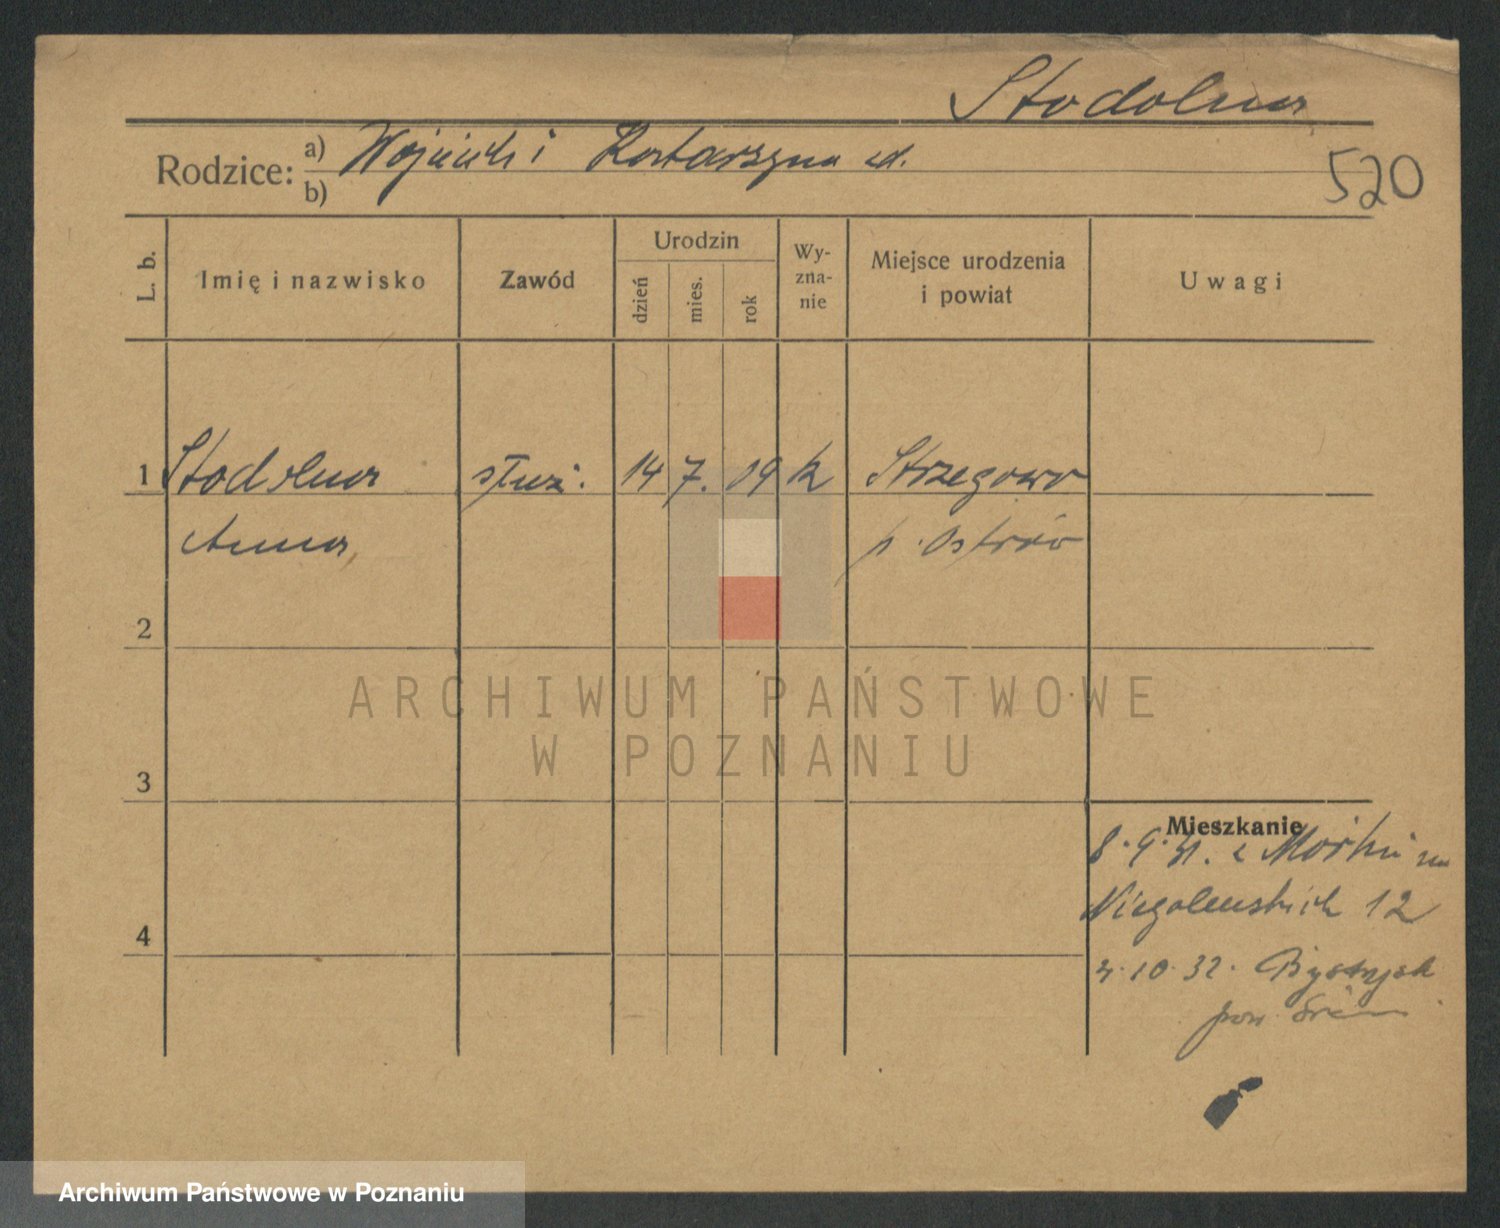 Stodolna
520
Rodzice: a) Wojciech i Katarzyna
b)
L. b.
Imię i nazwisko
Zawód
Urodzin
dzień
mies.
rok
Wy-
zna-
nie
Miejsce urodzenia
i powiat
Uwagi
1 Stodolna służ. 14 7. 19 k Strzegowo
Anna p. Ostrów
2
3
4
Mieszkanie
8.9.31. z
Niegolewskich 12
4.10.32.
pow. Śrem
ARCHIWUM PAŃSTWOWE
W POZNANIU
Archiwum Państwowe w Poznaniu